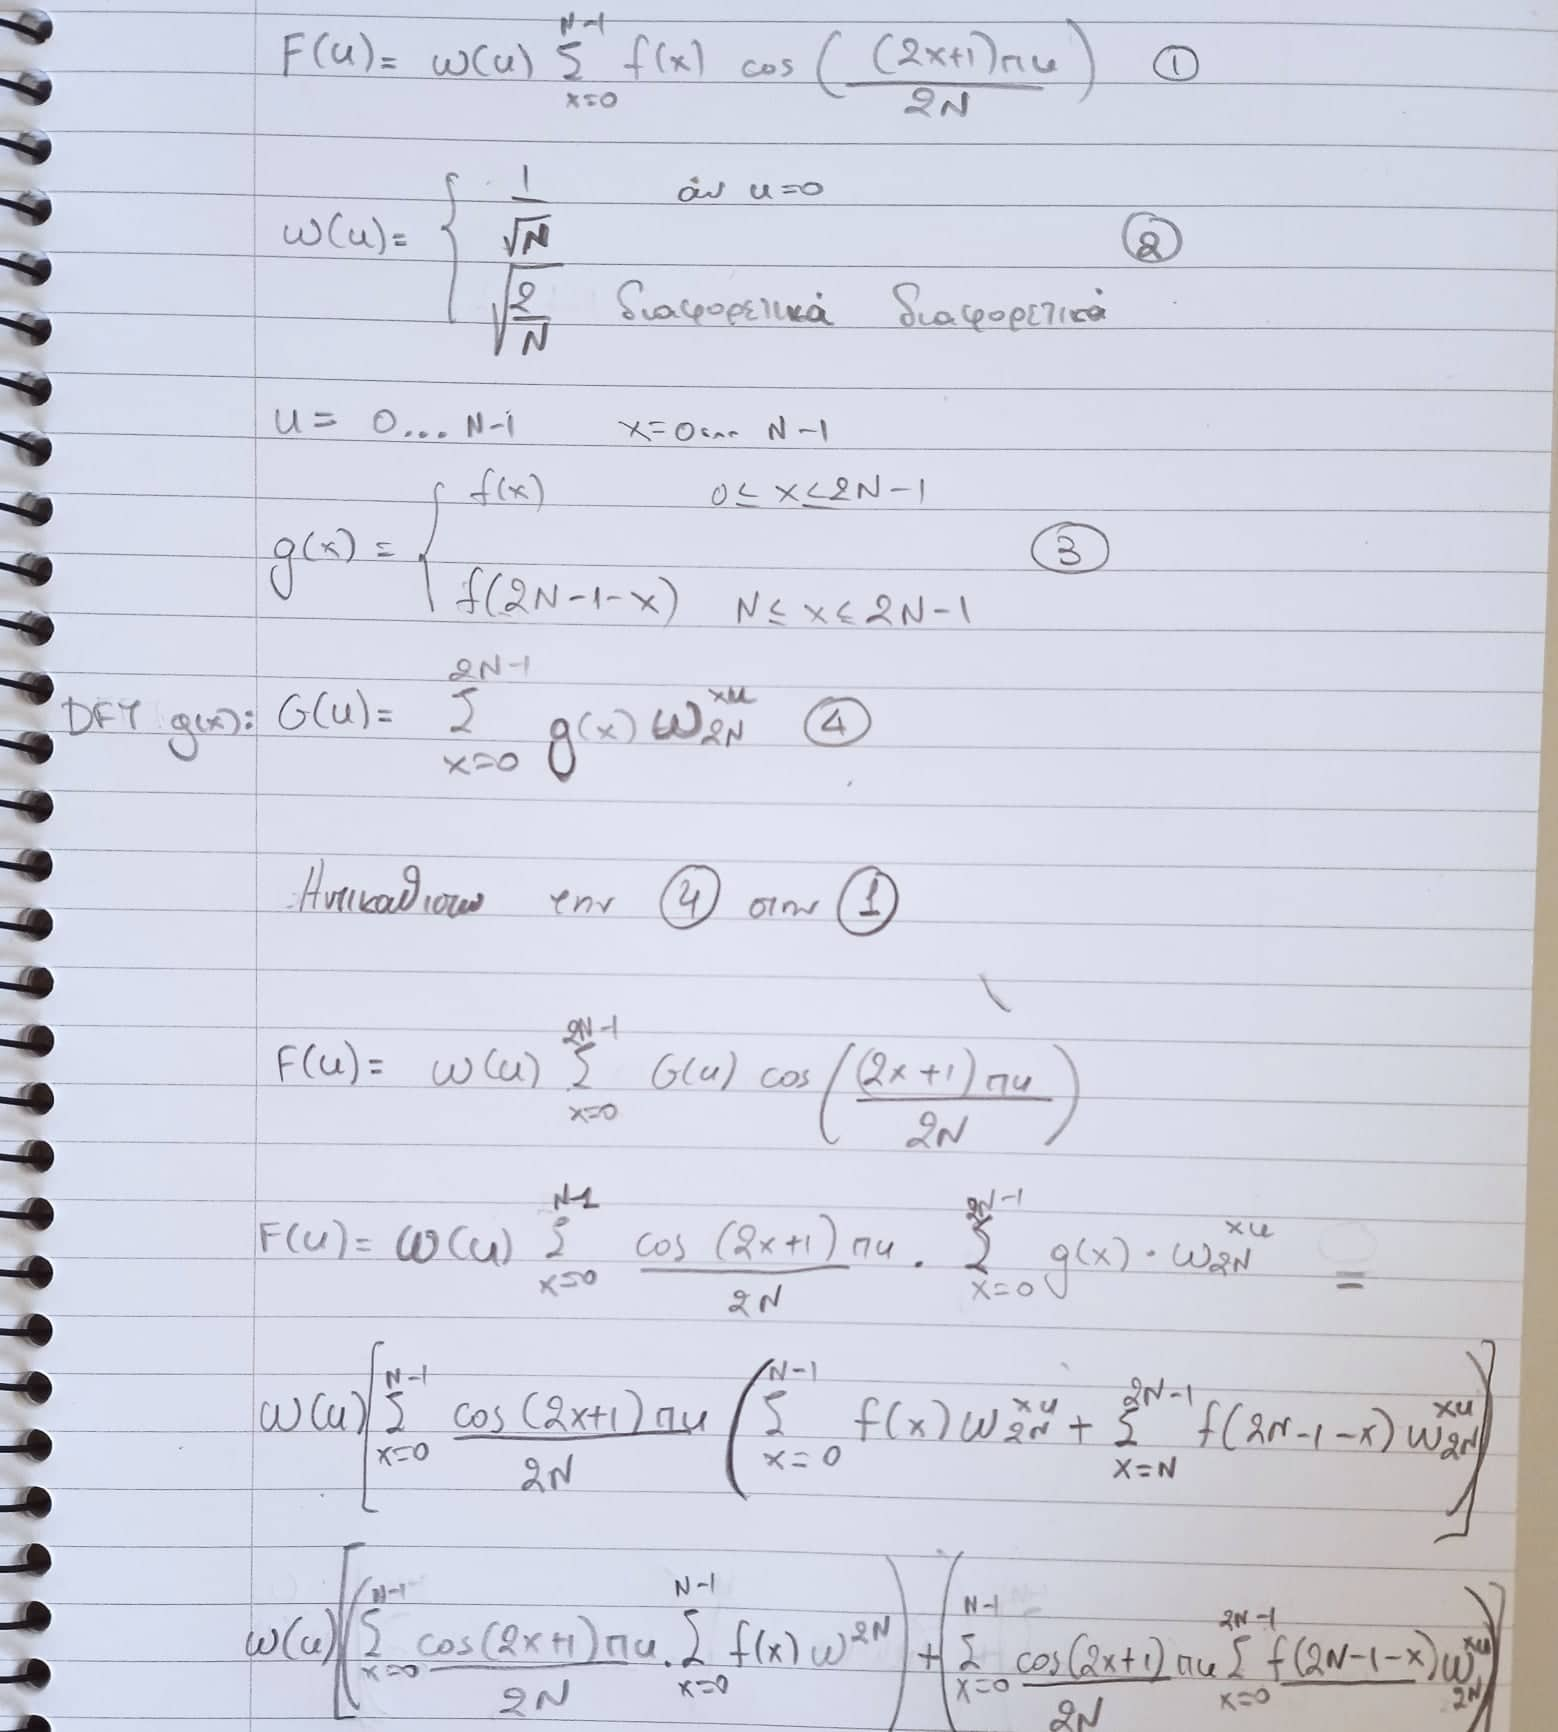 F(u)= w(u) Σ_{x=0}^{N-1} f(x) cos ( (2x+1)πu / 2N ) ①
w(u)= { 1/√N αν u=0 ②
√(2/N) διαφορετικά διαφορετικά
u= 0... N-1 x=0... N-1
g(x) = { f(x) 0≤ x≤2N-1 ③
f(2N-1-x) N≤ x≤ 2N-1
DFT g(x): G(u)= Σ_{x=0}^{2N-1} g(x) ω_{2N}^{xu} ④
Αντικαθιστω την ④ στην ①
F(u)= w(u) Σ_{x=0}^{2N-1} G(u) cos ( (2x+1)πu / 2N )
F(u)= w(u) Σ_{x=0}^{N-1} cos (2x+1)πu / 2N . Σ_{x=0}^{2N-1} g(x) · ω_{2N}^{xu} =
w(u) [ Σ_{x=0}^{N-1} cos (2x+1)πu / 2N ( Σ_{x=0}^{N-1} f(x) ω_{2N}^{xu} + Σ_{x=N}^{2N-1} f(2N-1-x) ω_{2N}^{xu} ) ]
w(u) [ ( Σ_{x=0}^{N-1} cos(2x+1)πu / 2N . Σ_{x=0}^{N-1} f(x) ω^{2N} ) + ( Σ_{x=0}^{N-1} cos(2x+1)πu / 2N Σ_{x=0}^{2N-1} f(2N-1-x) ω_{2N}^{xu} ) ]